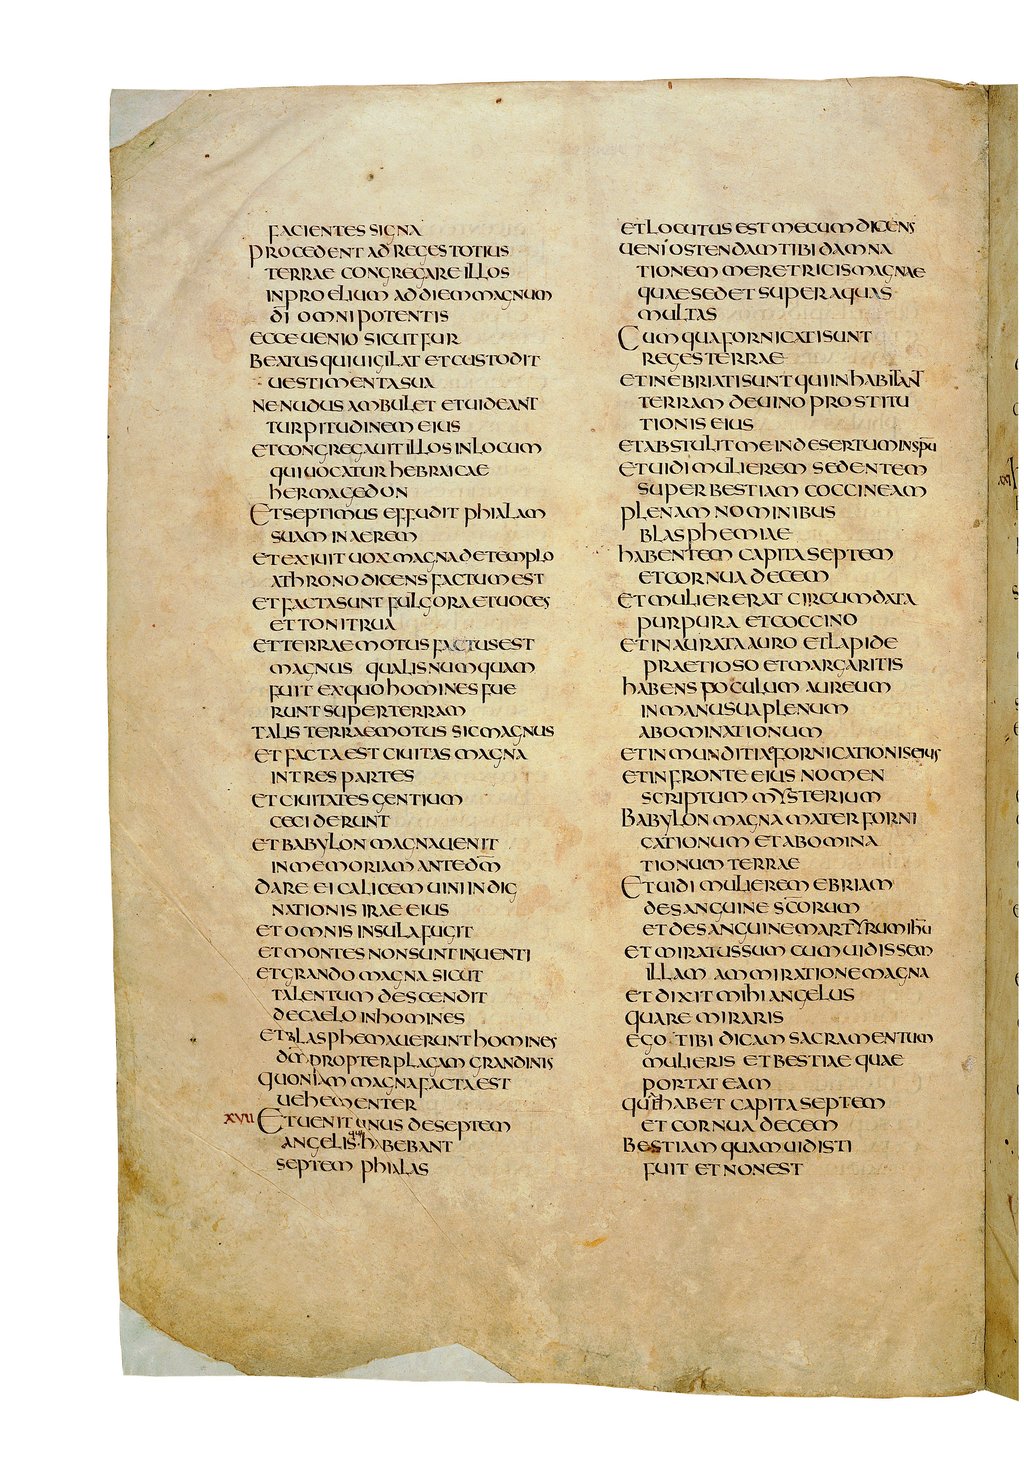 FACIENTES SIGNA
PROCEDENT AD REGES TOTIUS
TERRAE CONGREGARE ILLOS
IN PROELIUM AD DIEM MAGNUM
D̅I OMNIPOTENTIS
ECCE UENIO SICUT FUR
BEATUS QUI UIGILAT ET CUSTODIT
UESTIMENTA SUA
NE NUDUS AMBULET ET UIDEANT
TURPITUDINEM EIUS
ET CONGREGAUIT ILLOS IN LOCUM
QUI UOCATUR HEBRAICAE
HERMAGEDON
ET SEPTIMUS EFFUDIT PHIALAM
SUAM IN AEREM
ET EXIUIT UOX MAGNA DE TEMPLO
A THRONO DICENS FACTUM EST
ET FACTA SUNT FULGORA ET UOCES
ET TONITRUA
ET TERRAEMOTUS FACTUS EST
MAGNUS QUALIS NUMQUAM
FUIT EX QUO HOMINES FUE
RUNT SUPER TERRAM
TALIS TERRAEMOTUS SIC MAGNUS
ET FACTA EST CIUITAS MAGNA
IN TRES PARTES
ET CIUITATES GENTIUM
CECIDERUNT
ET BABYLON MAGNA UENIT
IN MEMORIAM ANTE D̅M
DARE EI CALICEM UINI INDIG
NATIONIS IRAE EIUS
ET OMNIS INSULA FUGIT
ET MONTES NON SUNT INUENTI
ET GRANDO MAGNA SICUT
TALENTUM DESCENDIT
DE CAELO IN HOMINES
ET BLASPHEMAUERUNT HOMINES
D̅M PROPTER PLAGAM GRANDINIS
QUONIAM MAGNA FACTA EST
UEHEMENTER
XVII ET UENIT UNUS DE SEPTEM
ANGELIS QUI HABEBANT
SEPTEM PHIALAS
ET LOCUTUS EST MECUM DICENS
UENI OSTENDAM TIBI DAMNA
TIONEM MERETRICIS MAGNAE
QUAE SEDET SUPER AQUAS
MULTAS
CUM QUA FORNICATI SUNT
REGES TERRAE
ET INEBRIATI SUNT QUI INHABITANT
TERRAM DE UINO PROSTITU
TIONIS EIUS
ET ABSTULIT ME IN DESERTUM IN SP̅U
ET UIDI MULIEREM SEDENTEM
SUPER BESTIAM COCCINEAM
PLENAM NOMINIBUS
BLASPHEMIAE
HABENTEM CAPITA SEPTEM
ET CORNUA DECEM
ET MULIER ERAT CIRCUMDATA
PURPURA ET COCCINO
ET INAURATA AURO ET LAPIDE
PRAETIOSO ET MARGARITIS
HABENS POCULUM AUREUM
IN MANU SUA PLENUM
ABOMINATIONUM
ET INMUNDITIA FORNICATIONIS EIUS
ET IN FRONTE EIUS NOMEN
SCRIPTUM MYSTERIUM
BABYLON MAGNA MATER FORNI
CATIONUM ET ABOMINA
TIONUM TERRAE
ET UIDI MULIEREM EBRIAM
DE SANGUINE SC̅ORUM
ET DE SANGUINE MARTYRUM IH̅U
ET MIRATUS SUM CUM UIDISSEM
ILLAM AMMIRATIONE MAGNA
ET DIXIT MIHI ANGELUS
QUARE MIRARIS
EGO TIBI DICAM SACRAMENTUM
MULIERIS ET BESTIAE QUAE
PORTAT EAM
QUI HABET CAPITA SEPTEM
ET CORNUA DECEM
BESTIAM QUAM UIDISTI
FUIT ET NON EST